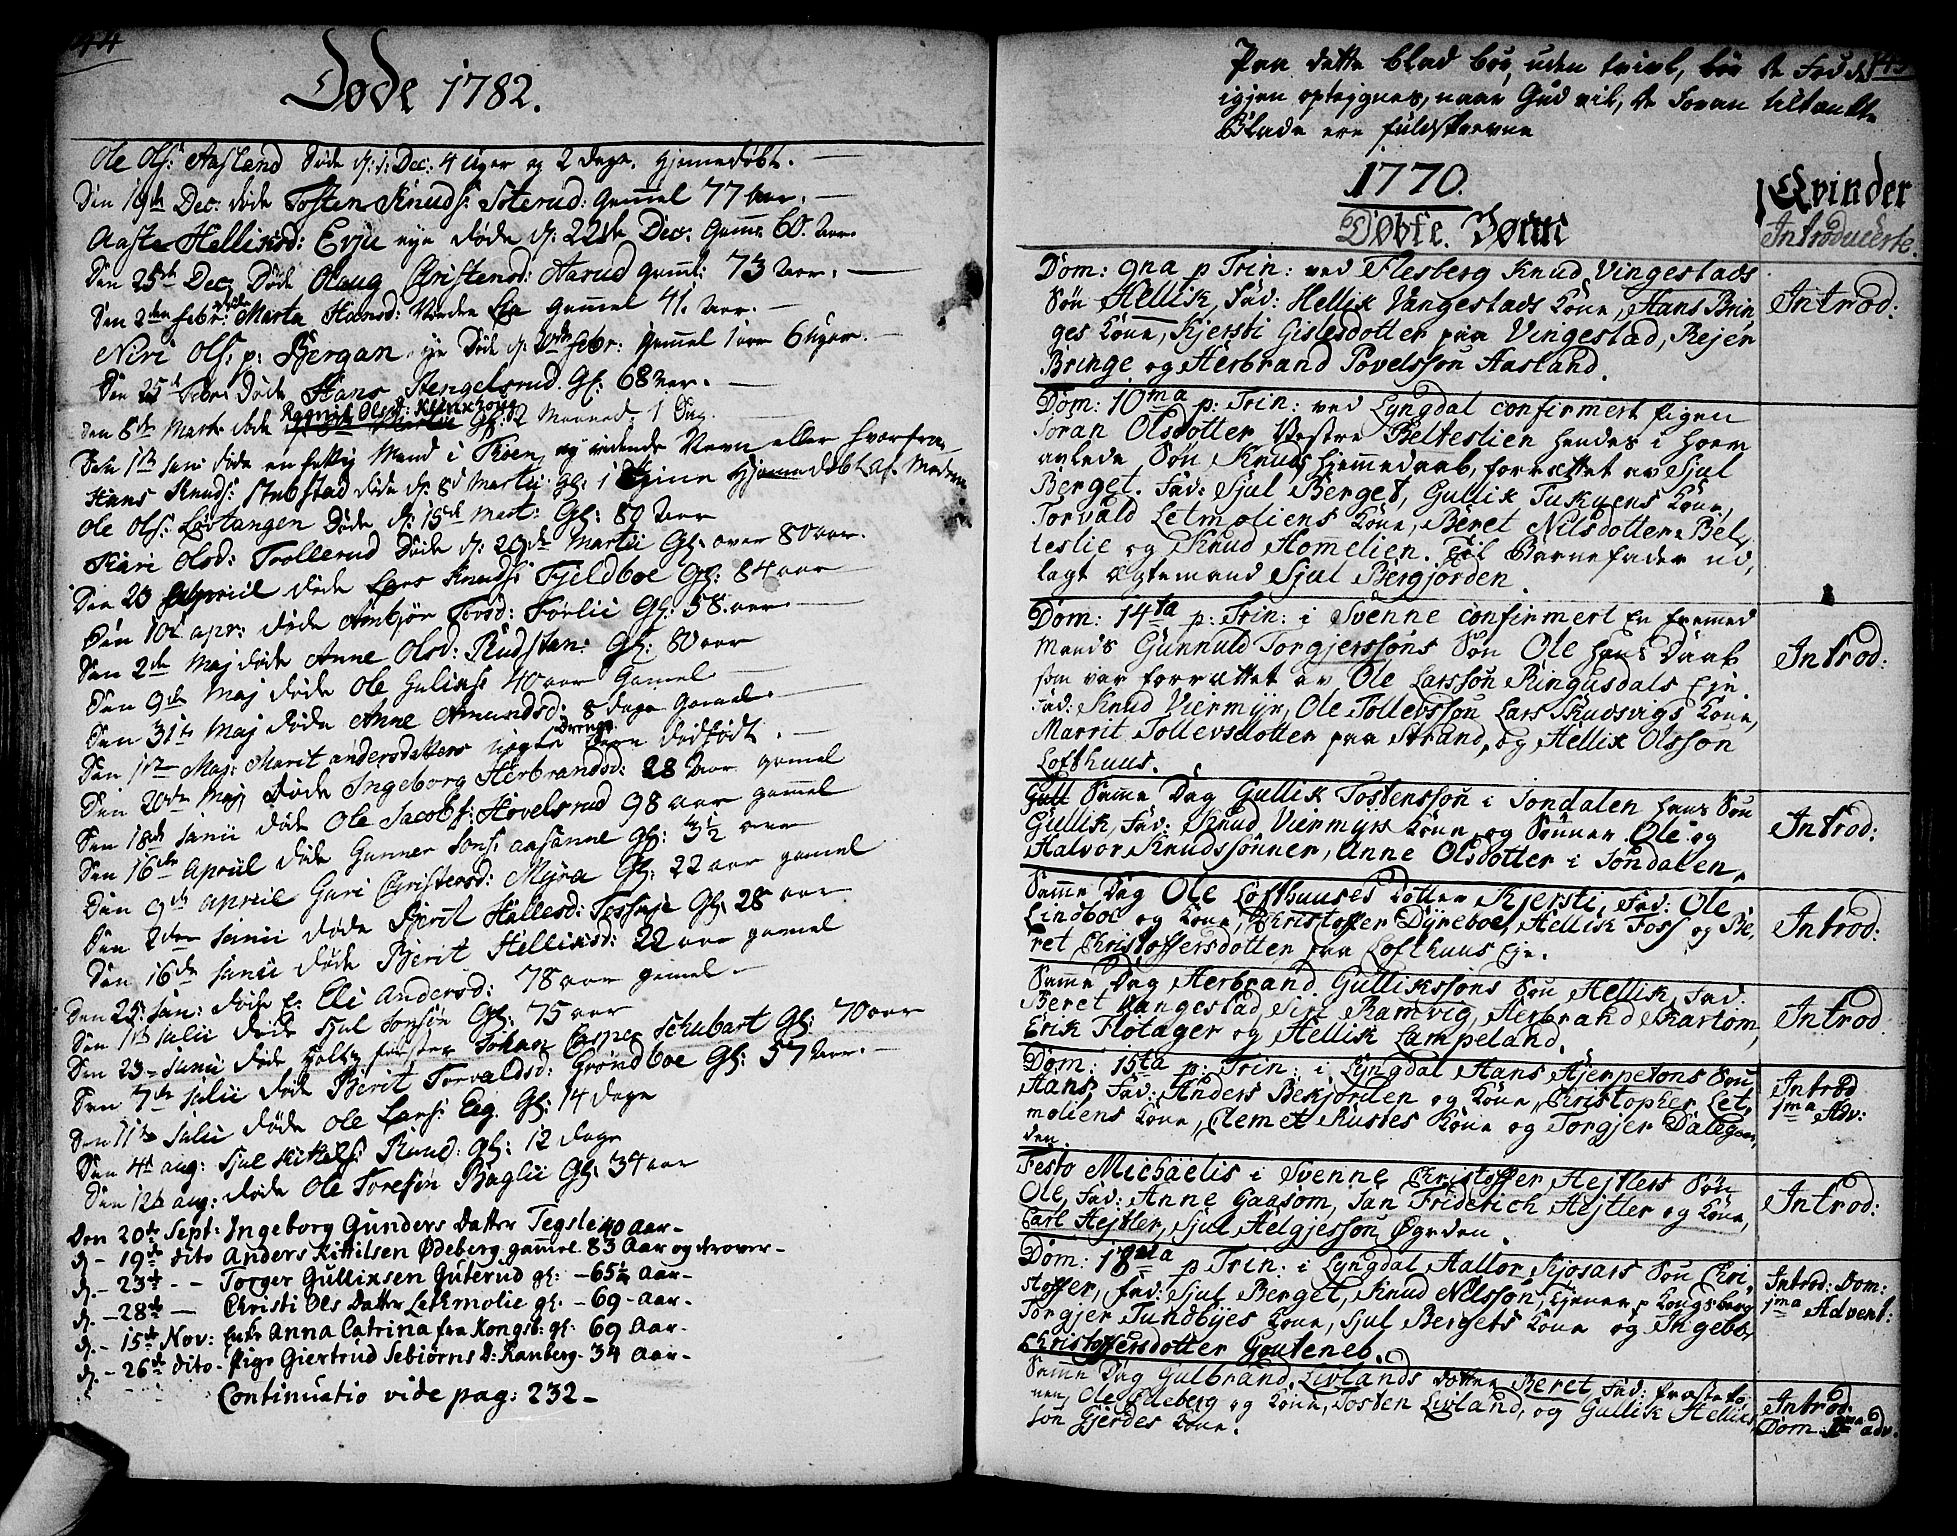 44
Døde 1782.
Ole Ols: Aasland Døde d: 1: Dec: 4 Uger og 2 Dage. Hjemedøbt.
Den 19de Dec: døde Tosten Knuds: Soterud: Gammel 77 Aar.
Aaste Helliksd: Evju eye døde d: 22de Dec: Gamel 60. Aar.
Den 25de Dec: Døde Olaug Christensd: Aarud gaml: 73 Aar.
Den 2den Febr: døde Marta Hansd: Lia gammel 41. Aar.
Niri Ols: p: Bergan eje Døde d: Febr: gammel 1 aar 6 Uger.
Den 25de Febr: Døde Hans Stengelsrud. Gl: 68 Aar.
Den 8de Marts døde Ragnil Olsd: Gl: 2 Maaned 1 Dag.
Den 1te Junii døde en fattig Mand i Moen, og vidende Navn eller hvorfra
Hans Knuds: Stubstad døde d: 8d Martii. gl: 1 Hjemedøbt af Moderen
Ole Ols: Løstangen Døde d: 15de Mart: Gl: 80 Aar
Kari Olsd: Trollerud Døde d: 29de Martii Gl: over 80 aar.
Den 20 Apriil døde Lars Knuds: Fjeldboe Gl: 84 aar
Den 10d apr: døde Ambjør Torsd: Førlii Gl: 58. aar.
Den 2den Maj døde Anne Olsd: Rudstan: Gl: 80 aar
Den 9de Maj døde Ole Guliks: 40 aar Gamel
Den 31te Maj døde Anne Amundsd: 8 dage Gamel
Den 1te Maj: Marit andersdatters Drenge Barn dødfødt.
Den 20de Maj Døde Ingeborg Herbrandsd: 28 Aar gamel
Den 18de Junii døde Ole Jacobs: Hovelsrud 98 aar gammel
Den 16de Apriil døde Gunner Jons: aasanne gl: 3½ aar
Den 9de apriil Guri Christersd: Myra Gl: 22 aar gamel
Den 2den Junii døde Berit Hallesd: Tessuje Gl: 28 aar
Den 16de Junii døde Berit Helliksd: 22 aar gamel
Den 25: Jan: døde E: Eli Andersd: 78 aar gamel
Den 1te Julii døde Sjul Jonsøn Gl: 75 aar
Den 23 Junii døde Holtz førster Johan Casper Schubart Gl: 70 aar
Den 7de Julii døde Berit Torvaldsd: Grøndboe Gl: 57 Aar.
Den 11te Julii døde Ole Lars: Eig. Gl: 14 dage
Den 4d aug: Sjul Kittels: Ruud: gl: 12 dage
Den 12te aug: døde Ole Toresøn Baglii Gl: 34 aar
Den 20de Sept: Ingeborg Gunders Datter Tegslei 40 aar-
d.- 19de dito Anders Kittilsen Ødeberg gammel 83 Aar og derover-
d.- 23de - - Torger Gullixsen Guterud gl: -65½ Aar-
d.- 28de - Christi Ols Datter Lethmolie gl: -69-Aar-
d.- 15de Nov: Enke Anna Catrina fra Kongsb: gl: 69 Aar-
d.- 26de dito- Pige Giertrud Sebiørns D: Ranberg- 34 Aar-
Continuatio vide pag: 232-
145
Paa dette blad bør, uden tvivl, de Fødde
igjen optejgnes, naar Gud vil, de Foran tiltænkte
Blade ere fuldskrevne
1770.
Døbte. Børn
Qvinder
Introducerte.
Dom: 9na p Trin: ved Flesberg Knud Vingestads
Søn Hellik, Fad: Hellik Vangestads Kone, Hans Brin-
ges Kone, Kjersti Gislesdotter paa Vingestad, Rejer
Bringe og Herbrand Povelssøn Aasland.
Introd:
Dom: 10ma p: Trin: ved Lyngdal confirmert Pigen
Joran Olsdotter Vestre Belteslien hendes i Hoer
avlede Søn Knuds Hjemmedaab, forrættet av Sjul
Berget. Fad: Sjul Berget, Gullik Tukuens Kone,
Torvald Letmoliens Kone, Beret Nilsdotter Bel-
teslie og Knud Homelien. Til Barnefader ud,
lagt ægtemand Sjul Bergjorden.
Dom: 14ta p: Trin: i Svenne confirmert En fremmed
Mands Gunnuld Torgjerssøns Søn Ole hans Daab
som var forrættet av Ole Larssøn Ringusdals Eje.
Fad: Knud Viermyr, Ole Tollevssøn Lars Skudsvigs Kone,
Marrit Tollevsdotter paa Strand, og Hellik Olssøn
Lofthuus.
Introd:
Gull Samme Dag Gullik Tostenssøn i Jondalen hans Søn
Gullik, Fad: Knud Viermyrs Kone, og Sønner Ole og
Halvor Knudssønner, Anne Olsdotter i Jondalen.
Introd:
Samme Dag Ole Lofthuuses Dotter Kjersti, Fad: Ole
Lindboe og Kone, Christoffer Dyreboe, Hellik Foss og Be-
ret Christoffersdotter paa Lofthuus Eje.
Introd:
Samme Dag Herbrand Gullikssøns Søn Hellik, Fad:
Beret Vangestad, Siri Ramvig, Herbrand Skartom,
Erik Flotager og Hellik Lampeland.
Introd.
Dom: 15ta p: Trin: i Lyngdal Hans Hjerpetons Søn
Hans, Fad: Anders Bekjorden og Kone, Christopher Let-
moliens Kone, Clemet Rustes Kone og Torgjer Dalegaar-
den.
Introd
1ma Adv:
Festo Michaëlis i Svenne Christoffer Hejtlers Søn
Ole, Fad: Anne Gaasom, Jan Friderich Hejtler og Kone,
Carl Hejtler, Sjul Helgjessøn Øgrden.
Introd:
Dom: 18na p Trin: i Lyngdal Hallor Kjosars Søn Chri-
stoffer, Fad: Sjul Berget, Knud Nilssøn, tjener p Kongsberg
Torgjer Tundbyes Kone, Sjul Bergets Kone og Ingebr
Christoffersdotter Gouteneb.
Introd: Dom:
1ma Advent:
Samme Dag Gulbrand Livlands Dotter Beret, Fad:
nen, Ole Ødeberg og Kone, Tosten Livland, og Gullik Hellik-
søn Gjerdes Kone.
Introd:
Dom: 1ma adv.